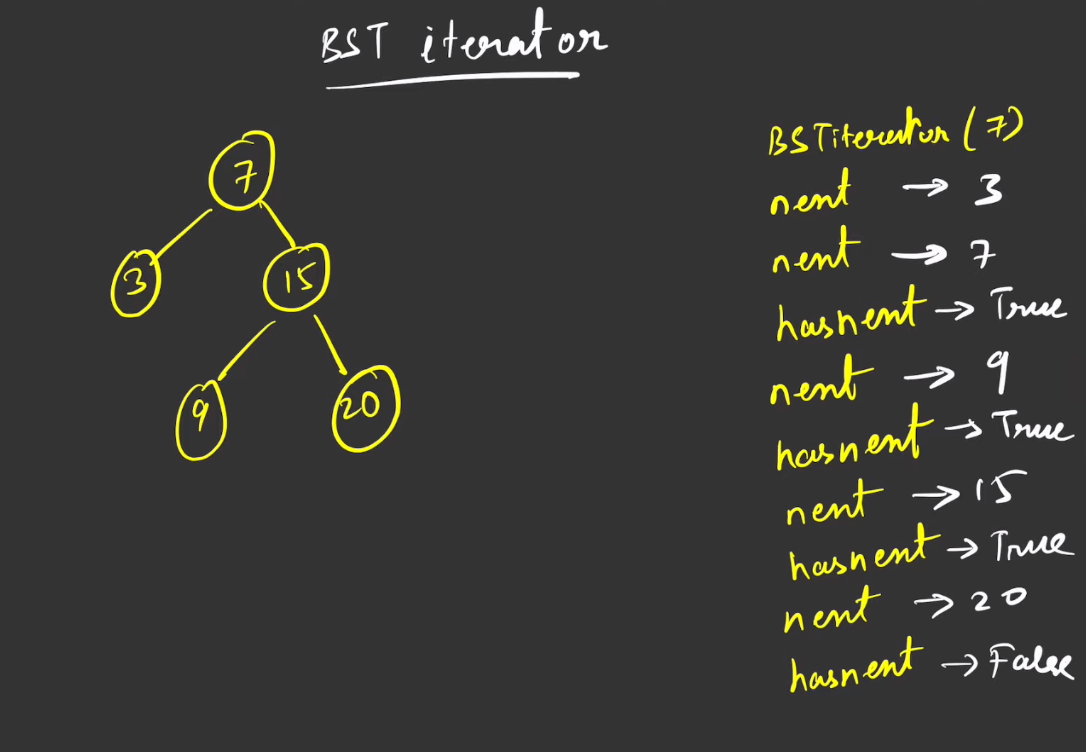 BST iterator
7
3
15
9
20
BSTiterator (7)
next → 3
next → 7
hasnext → True
next → 9
hasnext → True
next → 15
hasnext → True
next → 20
hasnext → False